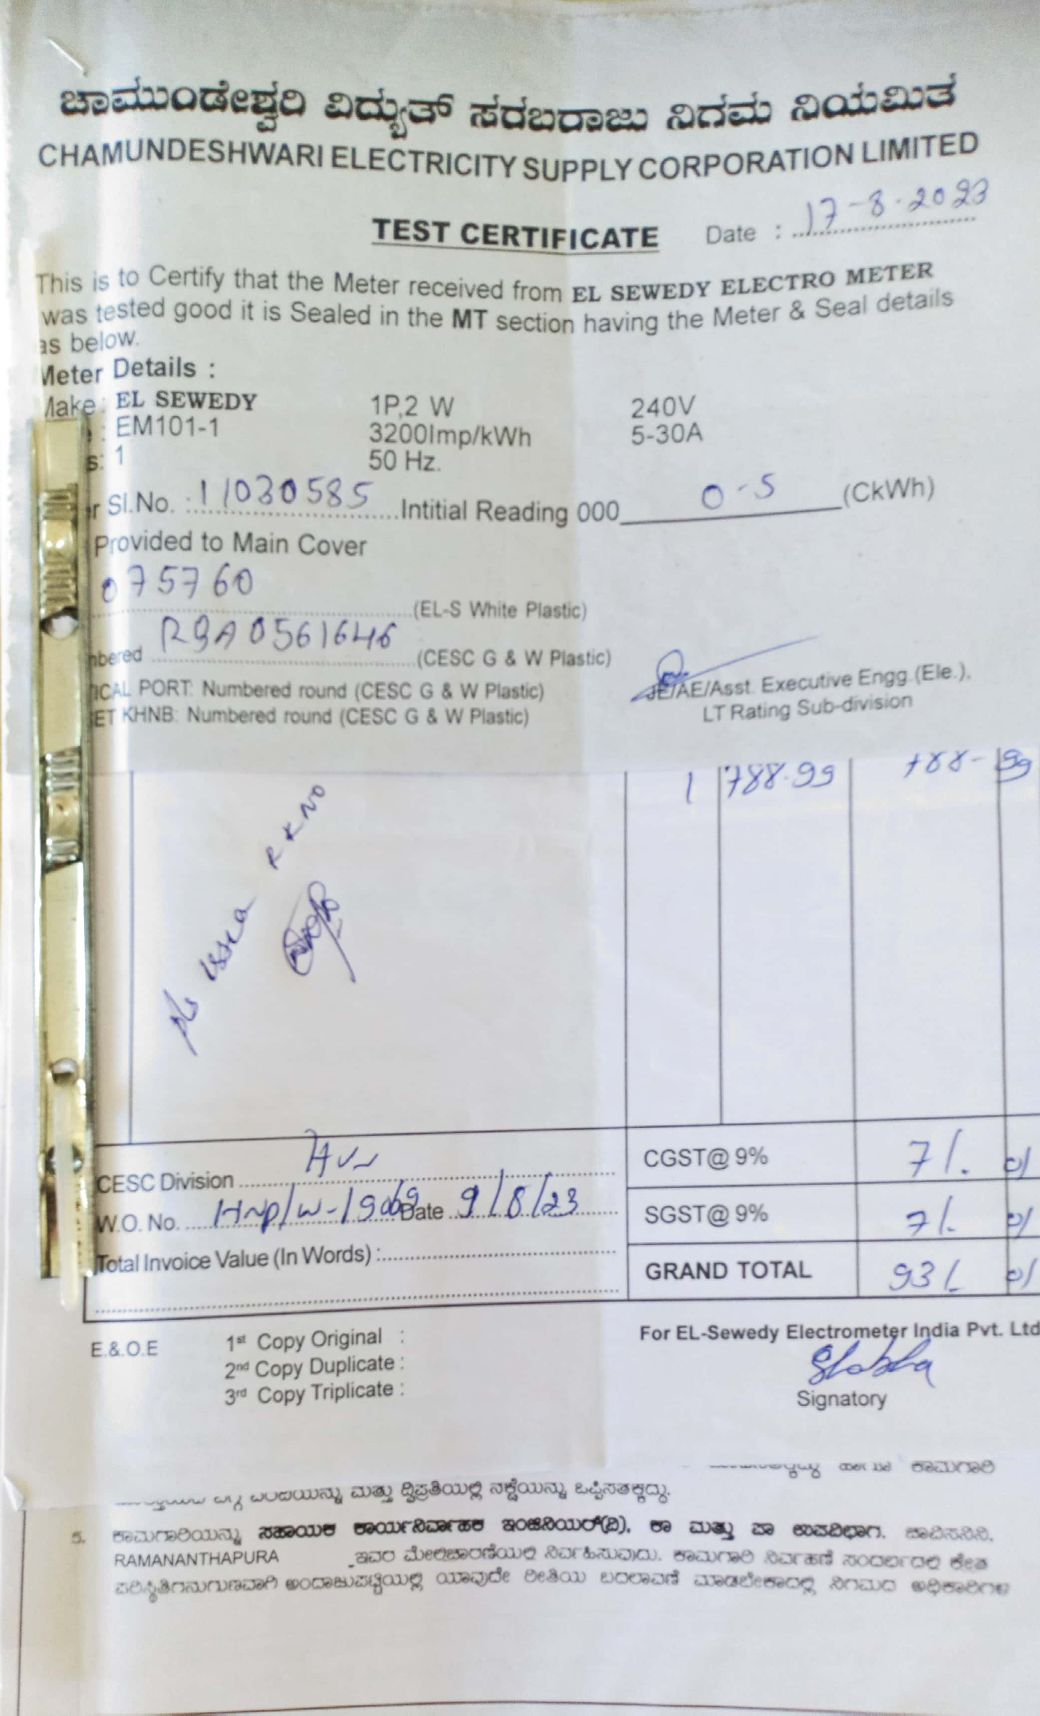 ಚಾಮುಂಡೇಶ್ವರಿ ವಿದ್ಯುತ್ ಸರಬರಾಜು ನಿಗಮ ನಿಯಮಿತ
CHAMUNDESHWARI ELECTRICITY SUPPLY CORPORATION LIMITED
TEST CERTIFICATE Date : 17-8-2023
This is to Certify that the Meter received from EL SEWEDY ELECTRO METER
was tested good it is Sealed in the MT section having the Meter & Seal details
as below.
Meter Details :
Make: EL SEWEDY 1P,2 W 240V
: EM101-1 3200Imp/kWh 5-30A
s: 1 50 Hz.
r Sl.No. : 11030585 Intitial Reading 000 0-5 (CkWh)
Provided to Main Cover
075760 (EL-S White Plastic)
bered R9A0561646 (CESC G & W Plastic)
ICAL PORT: Numbered round (CESC G & W Plastic)
JE/AE/Asst. Executive Engg.(Ele.),
ET KHNB: Numbered round (CESC G & W Plastic)
LT Rating Sub-division
1 788.99 788-99
R K NO
CESC Division CGST@ 9% 7/. 0/
W.O. No. Hnp/W-19069 Date 9/8/23 SGST@ 9% 7/- 0/
Total Invoice Value (In Words) : GRAND TOTAL 93/ 0/
E.&.O.E 1st Copy Original : For EL-Sewedy Electrometer India Pvt. Ltd
2nd Copy Duplicate :
3rd Copy Triplicate : Signatory
ಕಾಮಗಾರಿ
ಮತ್ತು ದ್ವಿಪ್ರತಿಯಲ್ಲಿ ನಕ್ಷೆಯನ್ನು ಒಪ್ಪಿಸತಕ್ಕದ್ದು.
5. ಕಾಮಗಾರಿಯನ್ನು ಸಹಾಯಕ ಕಾರ್ಯನಿರ್ವಾಹಕ ಇಂಜಿನಿಯರ್(ವಿ), ಕಾ ಮತ್ತು ಪಾ ಉಪವಿಭಾಗ, ಚಾವಿಸನಿನಿ,
RAMANANTHAPURA ಇವರ ಮೇಲಿಚಾರಣೆಯಲ್ಲಿ ನಿರ್ವಹಿಸುವುದು. ಕಾಮಗಾರಿ ನಿರ್ವಹಣೆ ಸಂದರ್ಭದಲ್ಲಿ ಕ್ಷೇತ್ರ
ಪರಿಸ್ಥಿತಿಗನುಗುಣವಾಗಿ ಅಂದಾಜುಪಟ್ಟಿಯಲ್ಲಿ ಯಾವುದೇ ರೀತಿಯ ಬದಲಾವಣೆ ಮಾಡಬೇಕಾದಲ್ಲಿ ನಿಗಮದ ಅಧಿಕಾರಿಗಳ